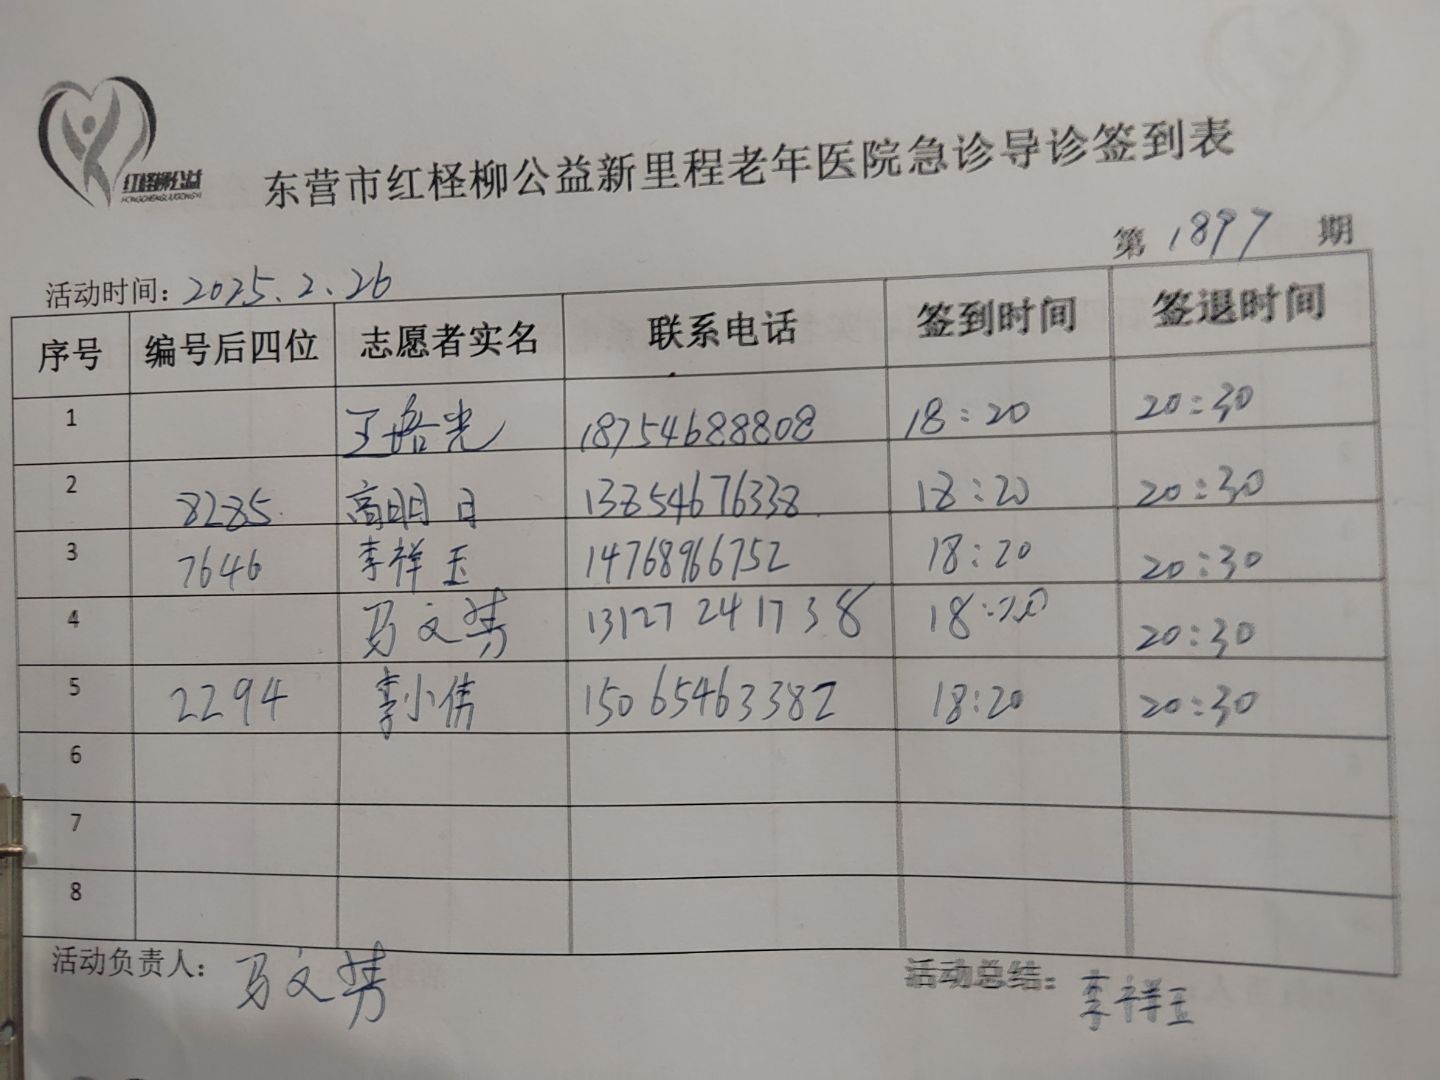 红柽柳公益
HONGCHENGLIUGONGYI
东营市红柽柳公益新里程老年医院急诊导诊签到表
第 1897 期
活动时间：2025.2.26
序号 编号后四位 志愿者实名 联系电话 签到时间 签退时间
1 王培光 18754688808 18:20 20:30
2 8285 高明日 13854676338 18:20 20:30
3 7646 李祥玉 14768966752 18:20 20:30
4 马文 13127241738 18:20 20:30
5 2294 李小倩 15065463382 18:20 20:30
6
7
8
活动负责人：马文
活动总结：李祥玉